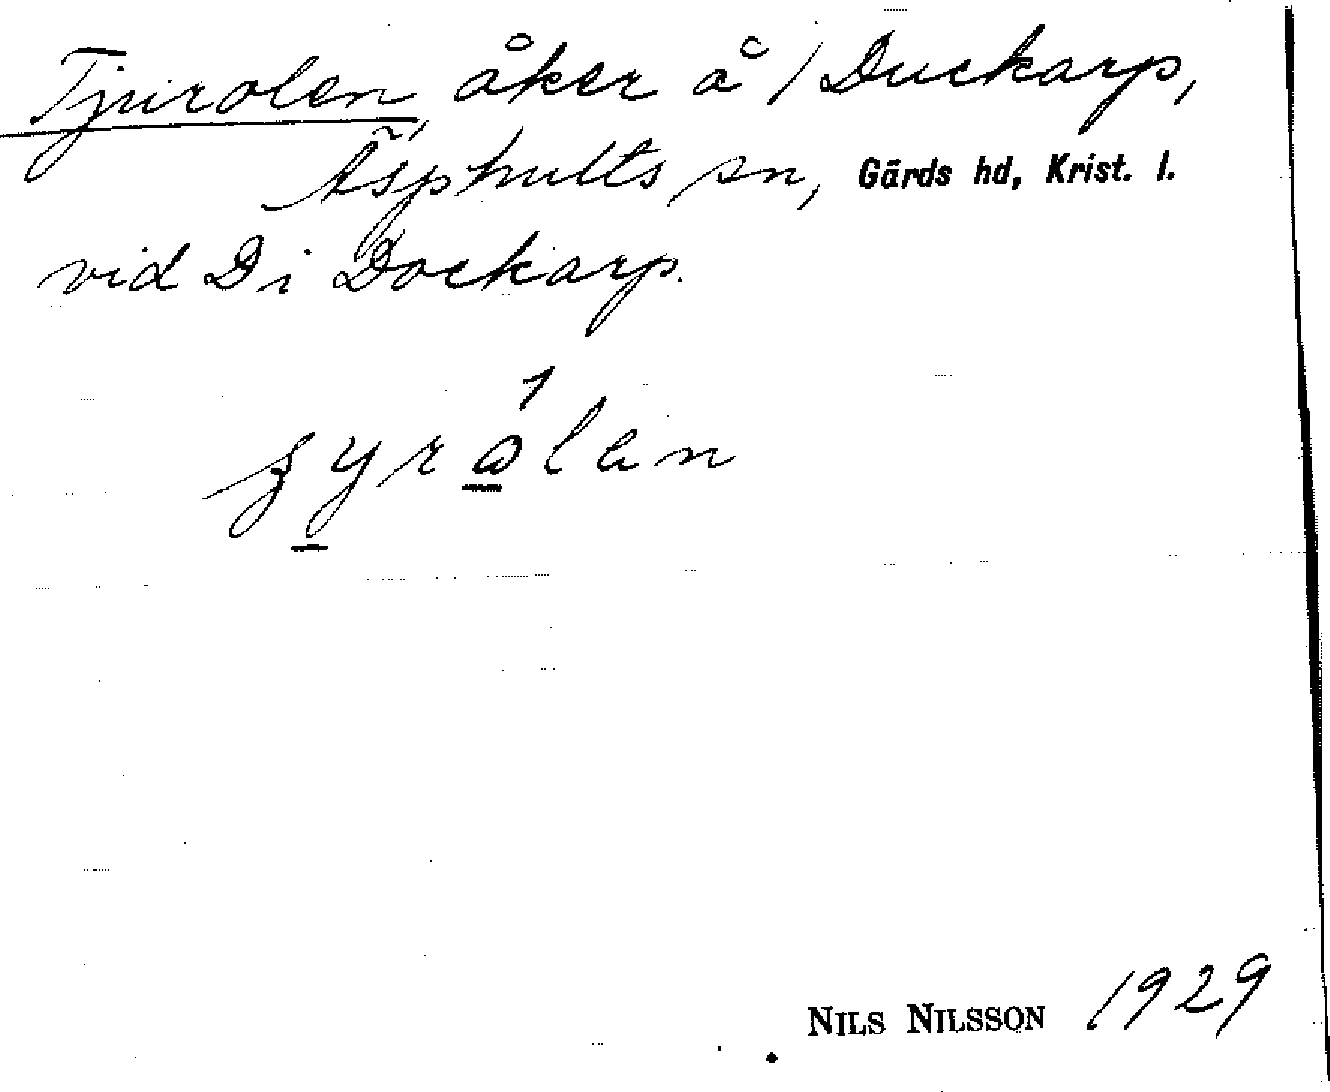 Tjurolen, åker å 1 Duckarp,
Äsphults sn, Gärds hd, Krist. l.
vid Di Dockarp.
NILS NILSSON 1929